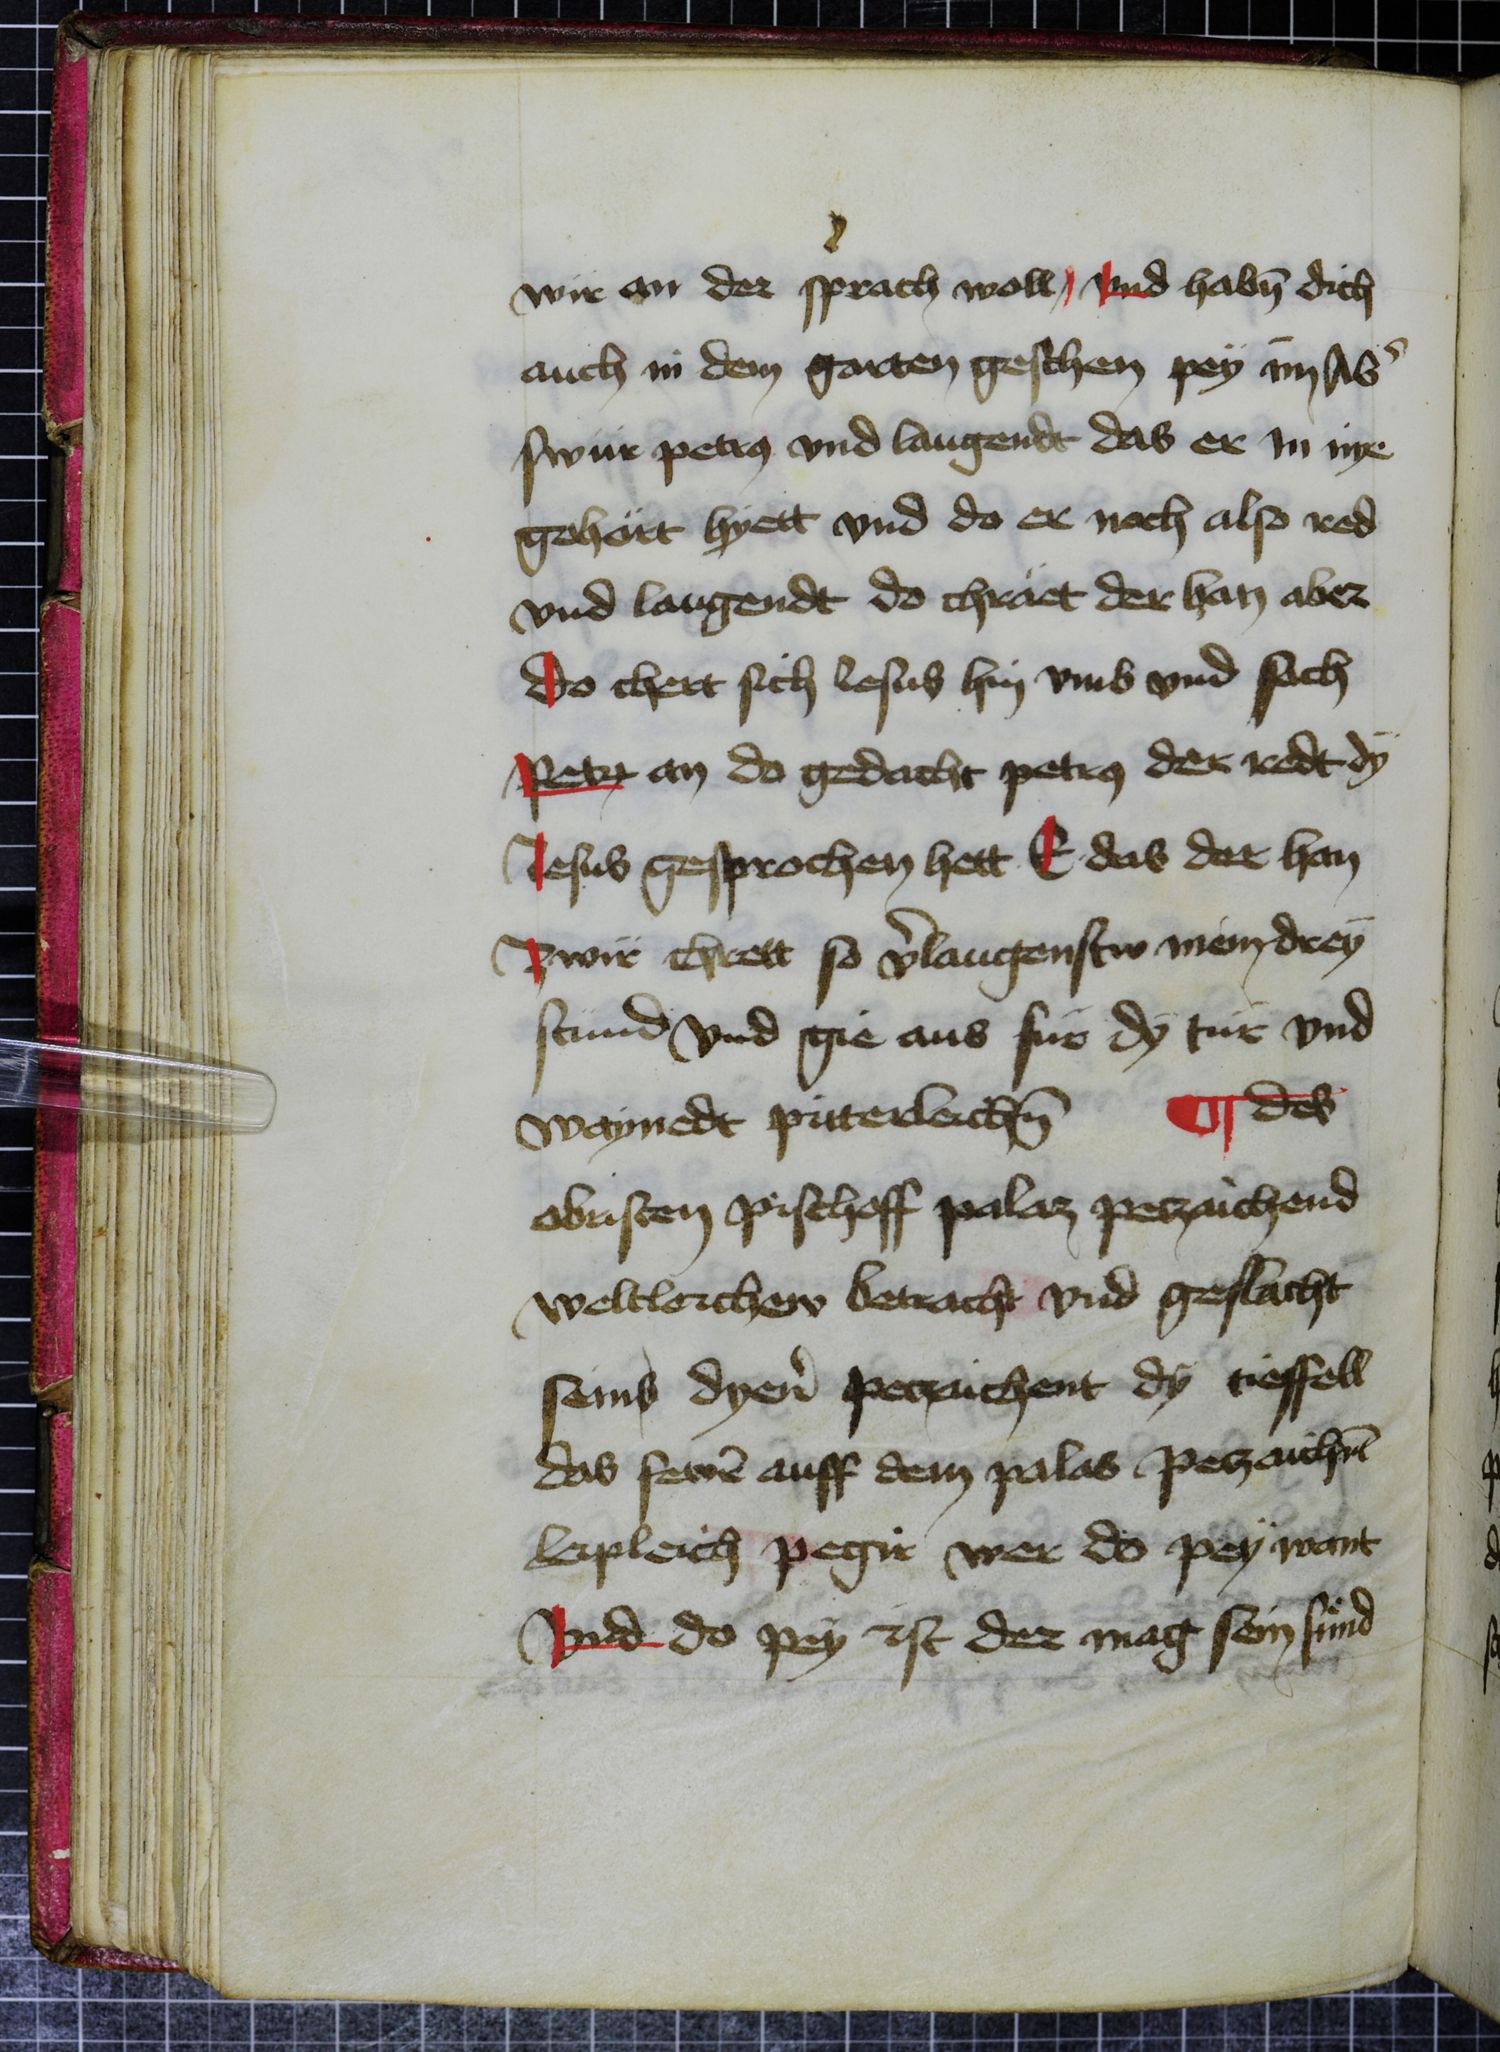 wir an der sprach woll / vnd habn̄ dich
auch in dem garten gesehen pey im̄ Abˀ
swür petrꝯ vnd laugendt das er in nye
gehört hyett vnd do er noch also red
vnd laugendt do chräet der han aber
Do chert sich Iesus hin vmb vnd sach
Petrꝯ an do gedacht petrꝯ der redt dy
Iesus gesprochen hett E das der han
Zwir chrett so v̉laugenstw mein drey
stund vnd gie aus für dy tür vnd
waynedt pitterleichn̄ ¶ des
obristen pischoff palaz petzaichend
weltleichew betracht vnd geslächt
seins dyen̉ petzaichent dy tieffell
das fewr̄ auff dem palas petzaichn̄t
leipleich pegir wer do pey want
Vnd do pey ist der mag sein sünd